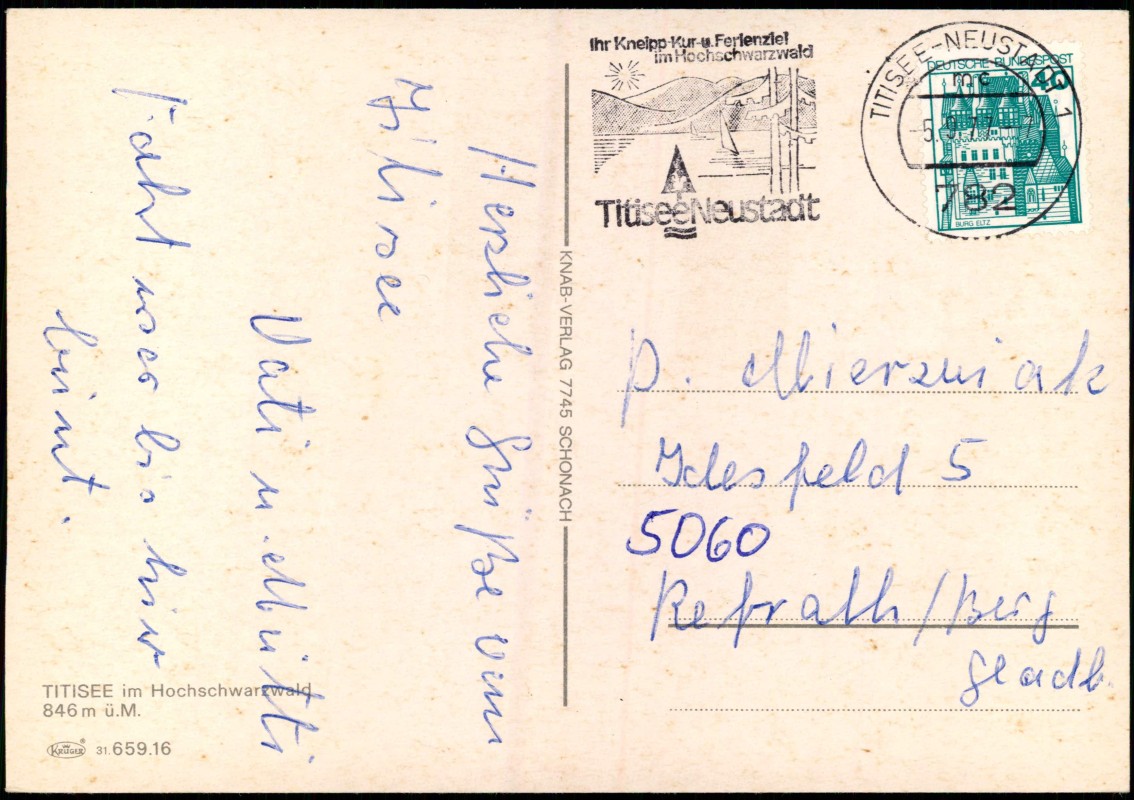 Herzliche Grüße vom
Titisee
Vati u. Mutti
Fahrt war bis hier
prima.
TITISEE im Hochschwarzwald
846 m ü.M.
KRÜGER 31.659.16
KNAB-VERLAG 7745 SCHONACH
Ihr Kneipp-Kur- u. Ferienziel
im Hochschwarzwald
TitiseeNeustadt
TITISEE-NEUSTADT 1
mc
782
DEUTSCHE BUNDESPOST
40
BURG ELTZ
P. Mierzwiak
Idesfeld 5
5060
Refrath/Berg
Gladb.